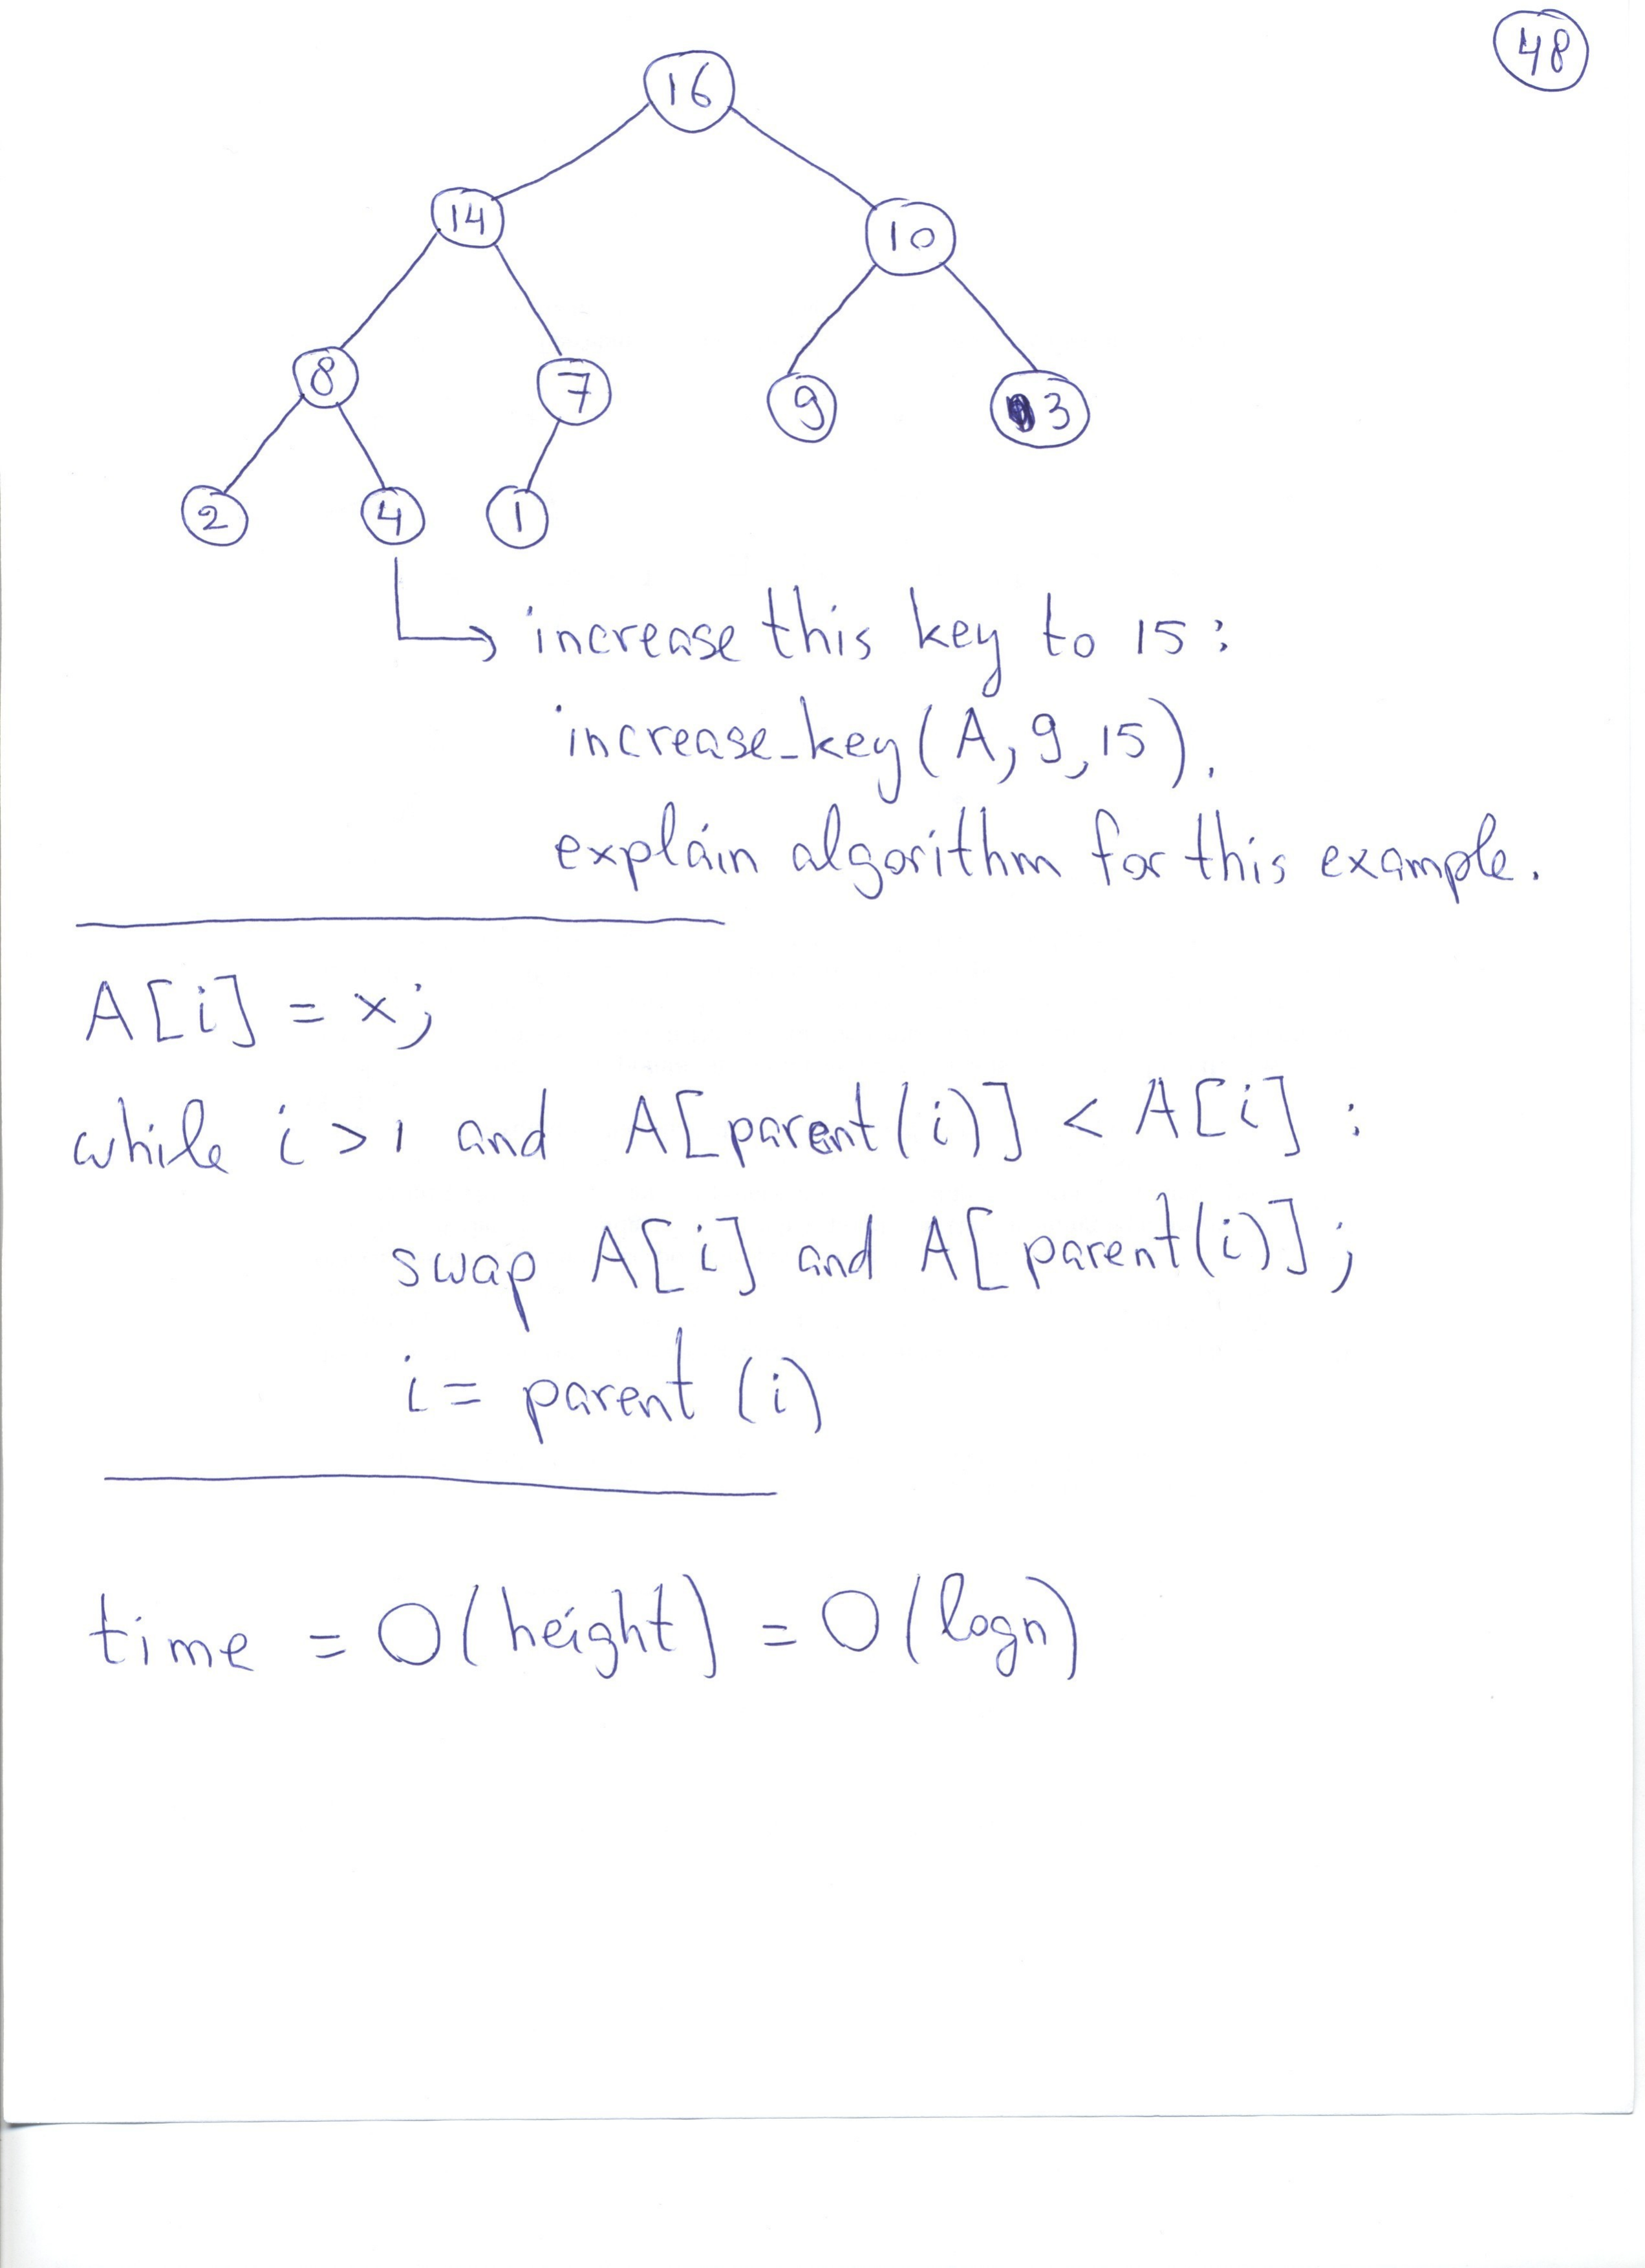 48
16
14
10
8
7
9
3
2
4
1
increase this key to 15:
increase_key(A, 9, 15).
explain algorithm for this example.
A[i] = x;
while i > 1 and A[parent(i)] < A[i] :
swap A[i] and A[parent(i)];
i = parent (i)
time = O(height) = O(logn)